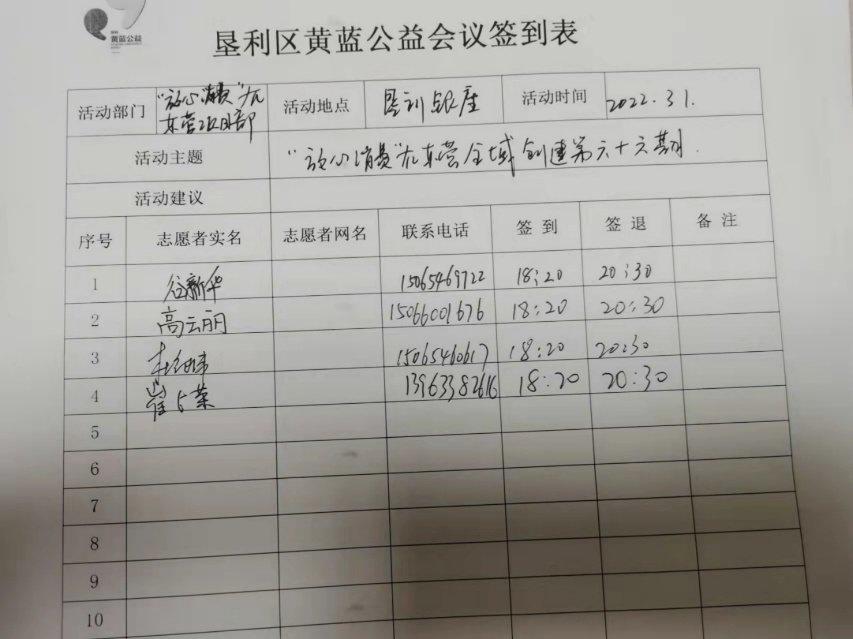 黄蓝公益
垦利区黄蓝公益会议签到表
活动部门 "放心消费"在东营项目部 活动地点 垦利银座 活动时间 2022.3.1.
活动主题 "放心消费"在东营全域创建第六十六期.
活动建议
序号 志愿者实名 志愿者网名 联系电话 签到 签退 备注
1 谷新华 15065469722 18:20 20:30
2 高云丽 15066001676 18:20 20:30
3 15065460617 18:20 20:30
4 崔占荣 13963382616 18:20 20:30
5
6
7
8
9
10